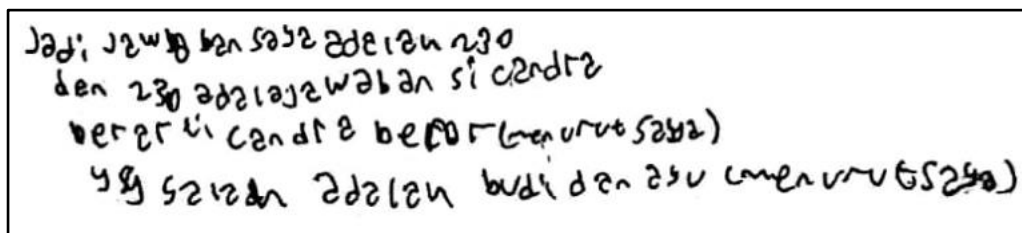 Jadi jawaban saya adalah 230
dan 230 adala jawaban si candra
berarti candra becor (menurut saya)
yg salah adalah budi dan ayu (menurut saya)